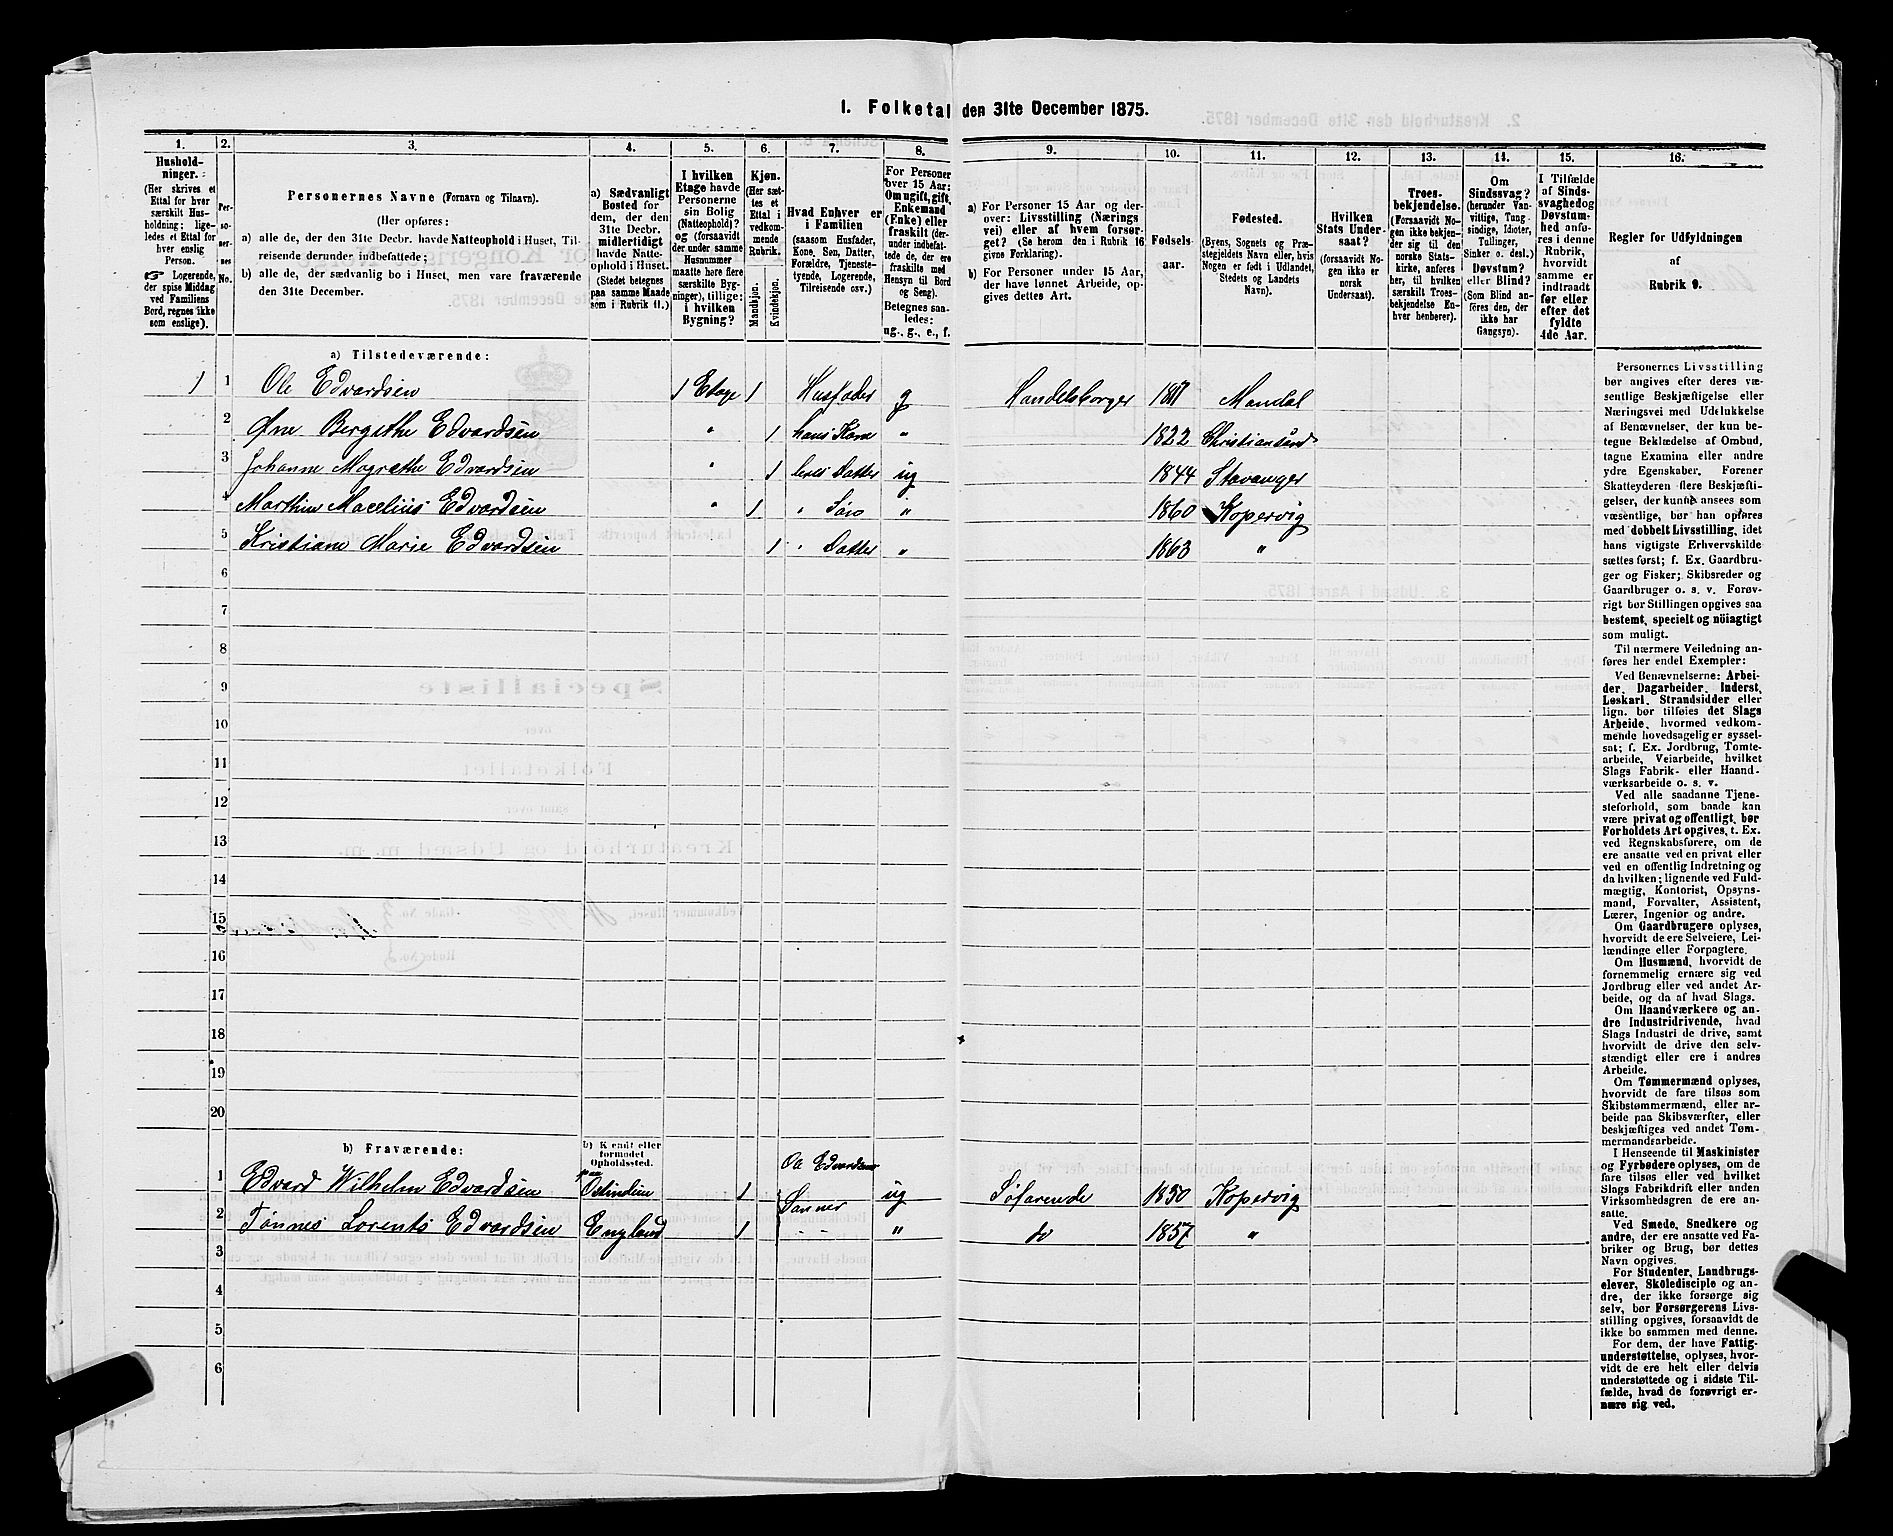 1. Folketal den 31te December 1875.
1. 2. 3. 4. 5. 6. 7. 8. 9. 10. 11. 12. 13. 14. 15. 16.
Hushold-
ninger.
(Her skrives et
Ettal for hver
særskilt Hus-
holdning; lige-
ledes et Ettal for
enslig
Person.
☞ Logerende,
der spise Middag
ved Familiens
Bord, regnes ikke
som enslige).
Per-
so-
ner-
nes
No.
Personernes Navne (Fornavn og Tilnavn).
(Her opføres:
a) alle de, der den 31te Decbr. havde Natteophold i Huset, Til-
reisende derunder indbefattede;
b) alle de, der sædvanlig bo i Huset, men vare fraværende
den 31te December.
a) Sædvanligt
Bosted for
dem, der den
31te Decbr.
midlertidigt
havde Natte-
ophold i Huset.
(Stedet betegnes
paa samme Maade
som i Rubrik 11.)
I hvilken
Etage havde
Personerne
sin Bolig
(Natteophold)?
og (forsaavidt
der under samme
Husnummer
maatte høre flere
særskilte Byg-
ninger), tillige:
i hvilken
Bygning?
Kjøn.
(Her sæt-
tes et
Ettal i
vedkom-
mende
Rubrik.
Mandkjøn.
Kvindekjøn.
Hvad Enhver er
i Familien
(saasom Husfader,
Kone, Søn, Datter,
Forældre, Tjeneste-
tyende, Logerende,
Tilreisende osv.)
For Personer
over 15 Aar:
Om ugift, gift,
Enkemand
(Enke) eller
fraskilt (der-
under indbefat-
tede de, der ere
fraskilte med
Hensyn til Bord
og Seng).
Betegnes saa-
ledes:
ug., g., e., f.
a) For Personer 15 Aar og der-
over: Livsstilling (Nærings-
vei) eller af hvem forsør-
get? (Se herom den i Rubrik 16
givne Forklaring).
b) For Personer under 15 Aar,
der have lønnet Arbeide, op-
gives dettes Art.
Fødsels-
aar.
Fødested.
(Byens, Sognets og Præ-
stegjeldets Navn, eller, hvis
Nogen er født i Udlandet,
Stedets og Landets
Navn).
Hvilken
Stats Under-
saat?
(forsaavidt No-
gen ikke er
norsk
Undersaat).
Troes-
bekjendelse.
(Forsaavidt No-
gen ikke bekjen-
der sig til den
norske Stats-
kirke, anføres
her, til hvilken
særskilt Troes-
bekjendelse En-
hver henhører).
Om
Sindssvag?
(herunder Van-
vittige, Tung-
sindige, Idioter,
Tullinger,
Sinker o. desl.)
Døvstum?
eller Blind?
(Som Blind an-
føres den, der
ikke har
Gangsyn).
I Tilfælde
af Sinds-
svaghed og
Døvstum-
hed anfø-
res i denne
Rubrik,
hvorvidt
samme er
indtraadt
før eller
efter det
fyldte
4de Aar.
Regler for Udfyldningen
af
Rubrik 9.
a) Tilstedeværende:
1 1 Ole Edvardsen 1 Etage 1 Husfader g Handelsborger Mandal
2 Bergithe Edvardsen " 1 hans Kone " 1822 Christiansand
3 Johanne Magrethe Edvardsen " 1 deres Datter ug 1844 Stavanger
4 Marthin Macelius Edvardsen " 1 " Søn " 1860 Kopervig
5 Kristiane Marie Edvardsen 1 " Datter " 1863 "
6
7
8
9
10
11
12
13
14
15
16
17
18
19
20
b) Fraværende:
b) Kendt eller
formodet
Opholdssted.
Ole Edvardsens
1 Edvard Wilhelm Edvardsen paa Ostindien 1 Sønner ug Søfarende 1850 Kopervig
2 Tønnes Lorents Edvardsen England 1 - - " do 1857 "
3
4
5
6
Personernes Livsstilling
bør angives efter deres væ-
sentlige Beskjæftigelse eller
Næringsvei med Udelukkelse
af Benævnelser, der kun be-
tegne Beklædelse af Ombud,
tagne Examina eller andre
ydre Egenskaber. Forener
Skatteyderen flere Beskjæfti-
gelser, der kunne ansees som
væsentlige, bør han opføres
med dobbelt Livsstilling, idet
hans vigtigste Erhvervskilde
sættes først; f. Ex. Gaardbru-
ger og Fisker; Skibsreder og
Gaardbruger o. s. v. Forøv-
rigt bør Stillingen opgives saa
bestemt, specielt og nöiagtigt
som muligt.
Til nærmere Veiledning an-
føres her endel Exempler:
Ved Benævnelserne: Arbei-
der, Dagarbeider, Inderst,
Løskarl, Strandsidder eller
lign. bør tilføies det Slags
Arbeide, hvormed vedkom-
mende hovedsagelig er syssel-
sat; f. Ex. Jordbrug, Tomte-
arbeide, Veiarbeide, hvilket
Slags Fabrik- eller Haand-
værksarbeide o. s. v.
Ved alle saadanne Tjene-
steforhold, som baade kan
være privat og offentligt, bør
Forholdets Art opgives, t. Ex.
ved Regnskabsførere, om de
ere ansatte ved en privat eller
ved en offentlig Indretning og
da hvilken; lignende ved Fuld-
mægtig, Kontorist, Opsyns-
mand, Forvalter, Assistent,
Lærer, Ingeniør og andre.
Om Gaardbrugere oplyses,
hvorvidt de ere Selveiere, Lei-
lændinge eller Forpagtere.
Om Husmænd, hvorvidt de
fornemmelig ernære sig ved
Jordbrug eller ved andet Ar-
beide, og da af hvad Slags.
Om Haandværkere og an-
dre Industridrivende, hvad
Slags Industri de drive, samt
hvorvidt de drive den selv-
stændigt eller ere i andres
Arbeide.
Om Tømmermænd oplyses,
hvorvidt de fare tilsøs som
Skibstømmermænd, eller ar-
beide paa Skibsværfter, eller
beskjæftiges ved andet Tøm-
mermandsarbeide.
I Henseende til Maskinister
og Fyrbødere oplyses, om de
fare tilsøs eller ved hvilket
Slags Fabrikdrift eller anden
Virksomhedsgren de ere an-
satte.
Ved Smede, Snedkere og
andre, der ere ansatte ved Fa-
briker og Brug, bør dettes
Navn opgives.
For Studenter, Landbrugs-
elever, Skoledisciple og an-
dre, der ikke forsørge sig
selv, bør Forsørgerens Livs-
stilling opgives, forsaavidt de
ikke bo sammen med denne.
For dem, der have Fattig-
understøttelse, oplyses, hvor-
vidt de ere helt eller delvis
understøttede og i sidste Til-
fælde, hvad de forøvrigt er-
nære sig ved.